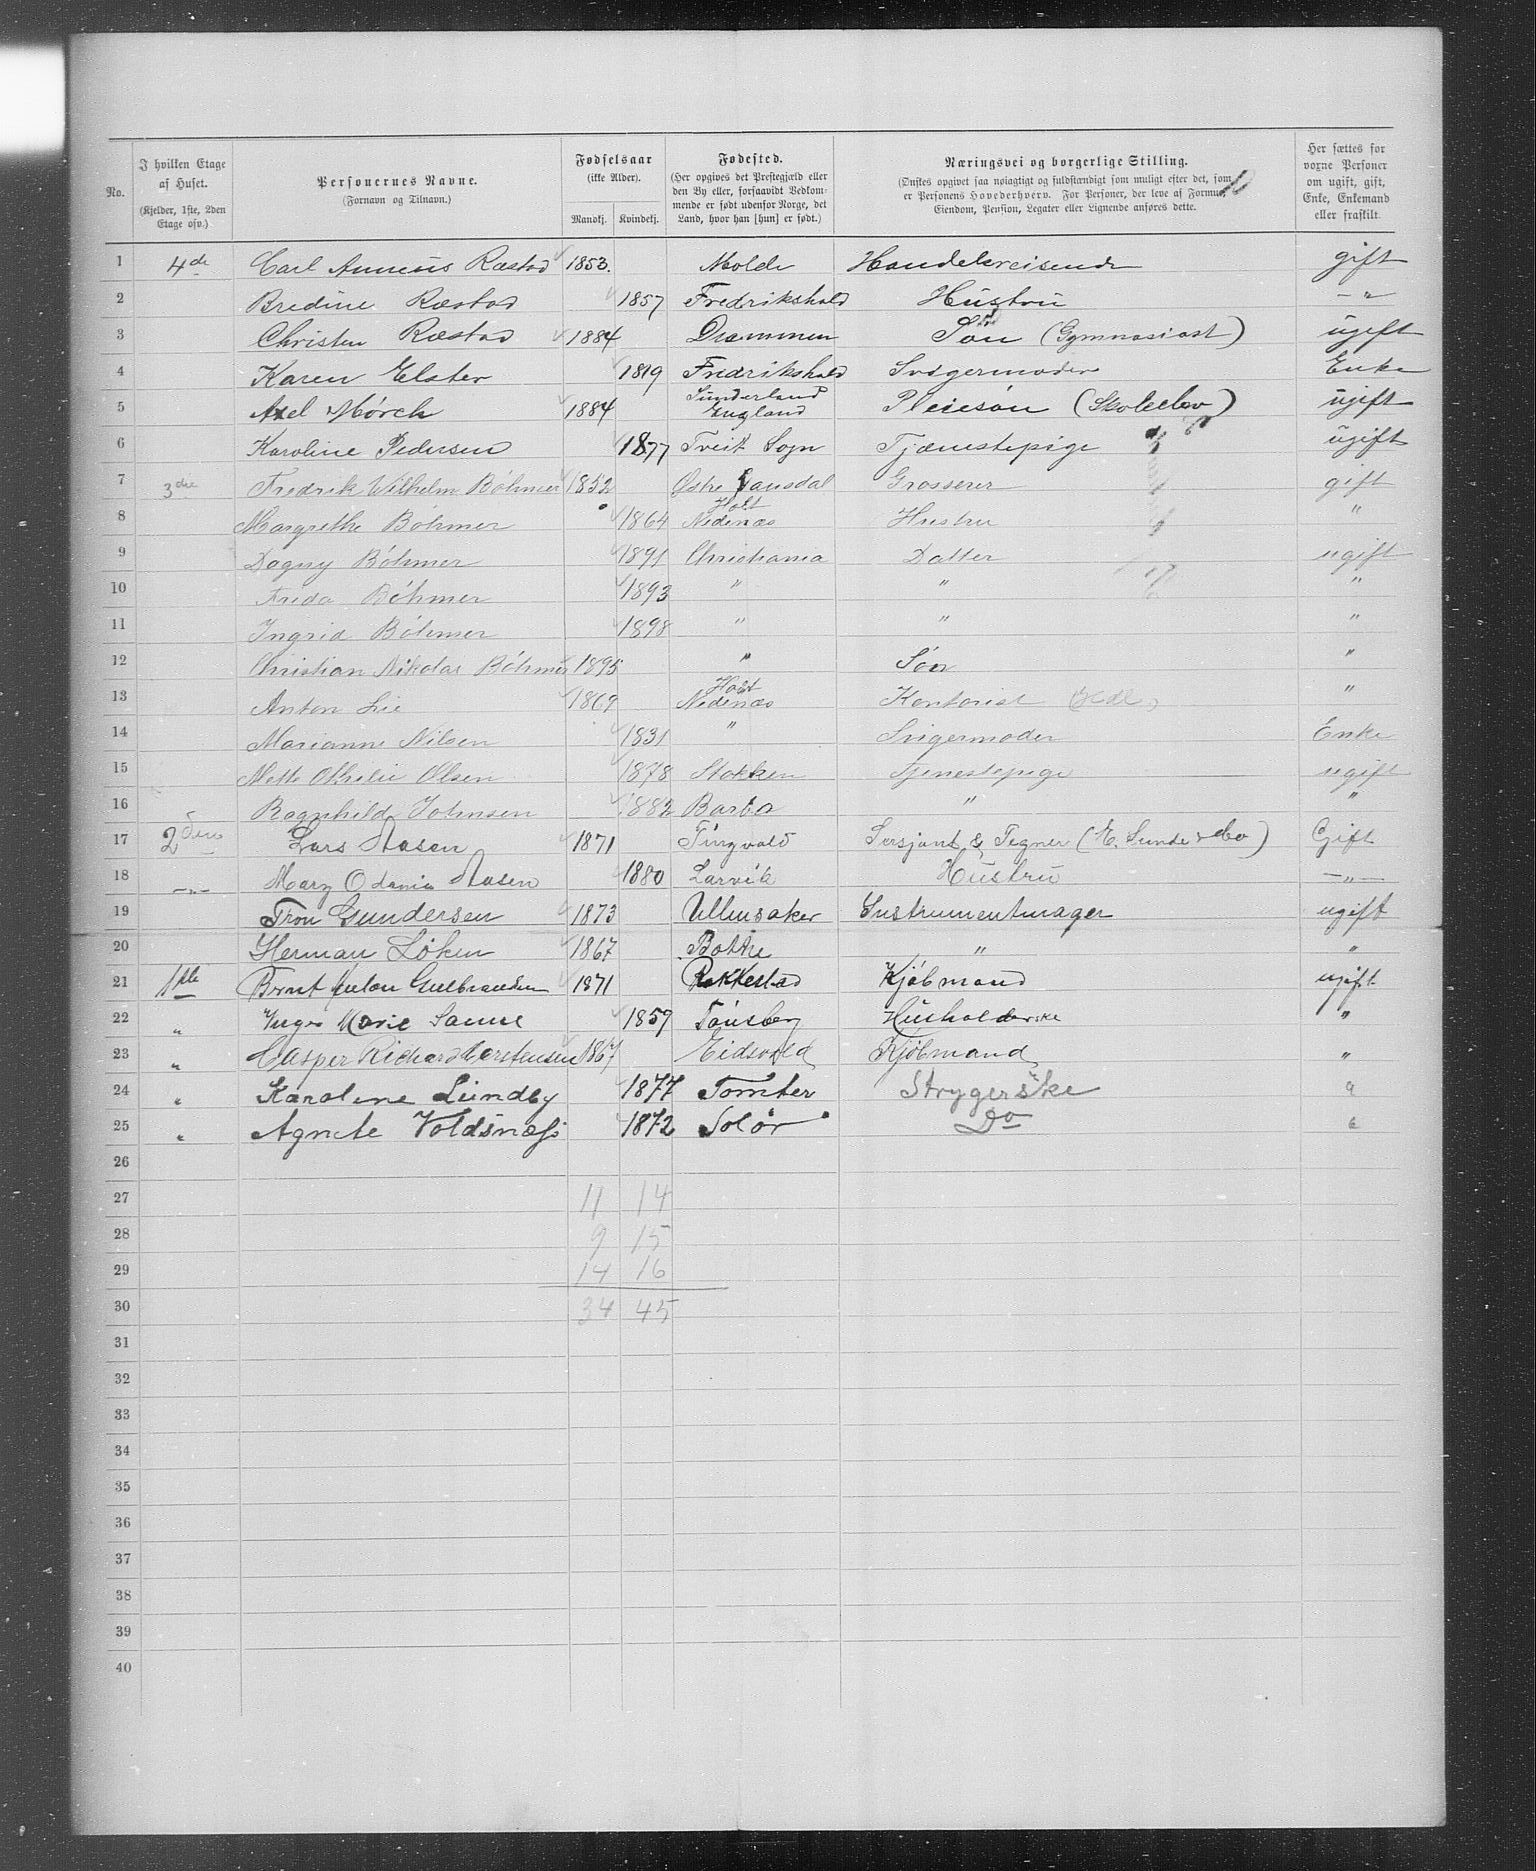 No.
I hvilken Etage af Huset.
(Kjelder, 1ste, 2den Etage osv.)
Personernes Navne.
(Fornavn og Tilnavn.)
Fødselsaar
(ikke Alder).
Mandkj. Kvindekj.
Fødested.
(Her opgives det Prestegjæld eller
den By eller, forsaavidt Vedkom-
mende er født udenfor Norge, det
Land, hvor han [hun] er født.)
Næringsvei og borgerlige Stilling.
(Ønskes opgivet saa nøiagtigt og fuldstændigt som muligt efter det, som
er Personens Hovederhverv. For Personer, der leve af Formue,
Eiendom, Pension, Legater eller Lignende anføres dette.
10
Her sættes for
voxne Personer
om ugift, gift,
Enke, Enkemand
eller fraskilt.
1 4de Carl Anneus Ræstad 1853. Molde Handelsreisende gift
2 Bredine Ræstad 1857 Fredrikshald Hustru — " —
3 Christen Ræstad 1884 Drammen Søn (Gymnasiast) ugift
4 Karen Elster 1819 Fredrikshald Svigermoder Enke
5 Axel Mörch 1884 Sunderland England Pleiesøn (Skoleelev) ugift
6 Karoline Pedersen 1877 Tveit Sogn Tjænestepige ugift
7 3die Fredrik Wilhelm Böhmer 1852 Østre Gausdal Grosserer gift
8 Margrethe Böhmer 1864 Holt Nedenæs Hustru "
9 Dagny Böhmer 1891 Christiania Datter ugift
10 Frida Böhmer 1893 " " "
11 Ingrid Böhmer 1898 " " "
12 Christian Nikolai Böhmer 1895 " Søn "
13 Anton Lie 1869 Holt Nedenæs Kontorist "
14 Marianne Nilsen 1831 " Svigermoder Enke
15 Mette Othilie Olsen 1878 Stokken Tjenestepige ugift
16 Ragnhild Johnsen 1882 Barbo " "
17 2den Lars Aasen 1871 Tingvold Sersjant & Tegner (E. Sunde & Co) Gift
18 —"— Mary Odania Aasen 1880 Larvik Hustru —"—
19 Tron Gundersen 1873 Ullensaker Instrumentmager ugift
20 Herman Løken 1867 Botne " "
21 1ste Bernt Anton Gulbrandsen 1871 Rakkestad Kjøbmand ugift
22 " Inger Marie Sanne 1859 Tønsberg Husholderske "
23 " Casper Richard Torstensen 1867 Eidsvold Kjøbmand "
24 " Karoline Lundby 1877 Tomter Strygerske "
25 " Agnete Voldsnæss 1872 Solør Do "
26
27 11 14
28 9 15
29 14 16
30 34 45
31
32
33
34
35
36
37
38
39
40